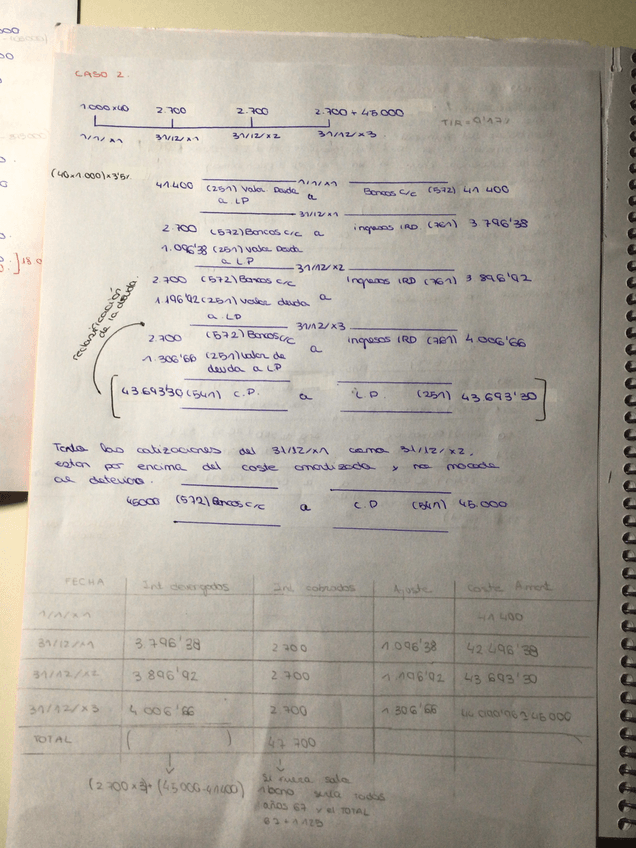 CASO 2.
1.000x40 2.700 2.700 2.700 + 45.000
1/1/x1 31/12/x1 31/12/x2 31/12/x3
TIR =
(40x1.000)x3'5%
1/1/x1
41.400 (251) Valor Deuda a LP a Bancos c/c (572) 41.400
31/12/x1
2.700 (572) Bancos c/c a ingresos IRD (761) 3.796'38
1.096'38 (251) Valor Deuda
a LP
31/12/x2
2.700 (572) Bancos c/c ingresos IRD (761) 3.896'92
1.196'92 (251) valor deuda a
a LP
31/12/x3
2.700 (572) Bancos c/c ingresos IRD (761) 4.006'66
1.306'66 (251) valor de a
deuda a LP
reclasificación
de la deuda
[43.693'30 (541) C.P. a L.P. (251) 43.693'30]
Tanto las cotizaciones del 31/12/x1 como 31/12/x2,
estan por encima del coste amortizado y no procede
al deterioro.
45000 (572) Bancos c/c a C.P (541) 45.000
FECHA Int devengados Int cobrados Ajuste Coste Amort
1/1/x1 41.400
31/12/x1 3.796'38 2.700 1.096'38 42.496'38
31/12/x2 3.896'92 2.700 1.196'92 43.693'30
31/12/x3 4.006'66 2.700 1.306'66 45000
TOTAL ( ) 47.700
(2.700x3)+(45000-41400)
Si fuera solo
1 bono seria todos
años 67 y el TOTAL